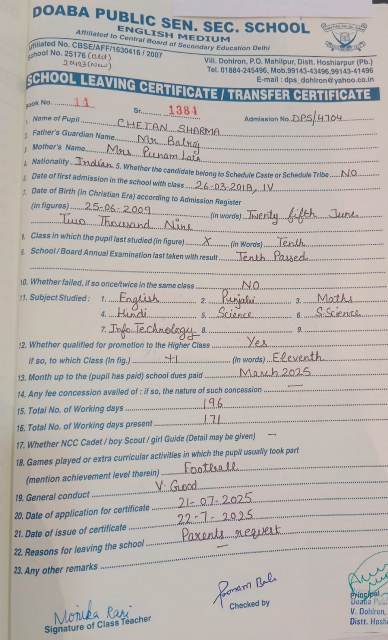 DOABA PUBLIC SEN. SEC. SCHOOL
ENGLISH MEDIUM
Affiliated to Central Board of Secondary Education Delhi
Affiliated No. CBSE/AFF/1630416 / 2007
School No. 25176 (old)
20193 (New)
Vill. Dohlron, P.O. Mahilpur, Distt. Hoshiarpur (Pb.)
Tel. 01884-245496, Mob.99143-43496,99143-41496
E-mail : dps_dohlron@yahoo.co.in
SCHOOL LEAVING CERTIFICATE / TRANSFER CERTIFICATE
Book No. 11 Sr. 1384 Admission No. DPS/4704
1. Name of Pupil CHETAN SHARMA
2. Father's Guardian Name Mr Balraj
3. Mother's Name Mrs Punam Lata
4. Nationality Indian 5. Whether the candidate belong to Schedule Caste or Schedule Tribe NO
6. Date of first admission in the school with class 26-03-2018, IV
7. Date of Birth (in Christian Era) according to Admission Register
(in figures) 25-06-2009 (in words) Twenty fifth June
Two Thousand Nine
8. Class in which the pupil last studied (in figure) X (in Words) Tenth
9. School / Board Annual Examination last taken with result Tenth Passed
10. Whether failed, if so once/twice in the same class NO
11. Subject Studied : 1. English 2. Punjabi 3. Maths
4. Hindi 5. Science 6. S.Science
7. Info.Technology 8. 9.
12. Whether qualified for promotion to the Higher Class Yes
if so, to which Class (in fig.) +1 (in words) Eleventh
13. Month up to the (pupil has paid) school dues paid March 2025
14. Any fee concession availed of : if so, the nature of such concession —
15. Total No. of Working days 196
16. Total No. of Working days present 171
17. Whether NCC Cadet / boy Scout / girl Guide (Detail may be given) —
18. Games played or extra curricular activities in which the pupil usually took part
(mention achievement level therein) Football
19. General conduct V. Good
20. Date of application for certificate 21-07-2025
21. Date of issue of certificate 22-7-2025
22. Reasons for leaving the school Parents request
23. Any other remarks —
Monika Rani
Signature of Class Teacher
Poonam Bala
Checked by
Principal
Doaba Publ
V. Dohlron,
Distt. Hoshi